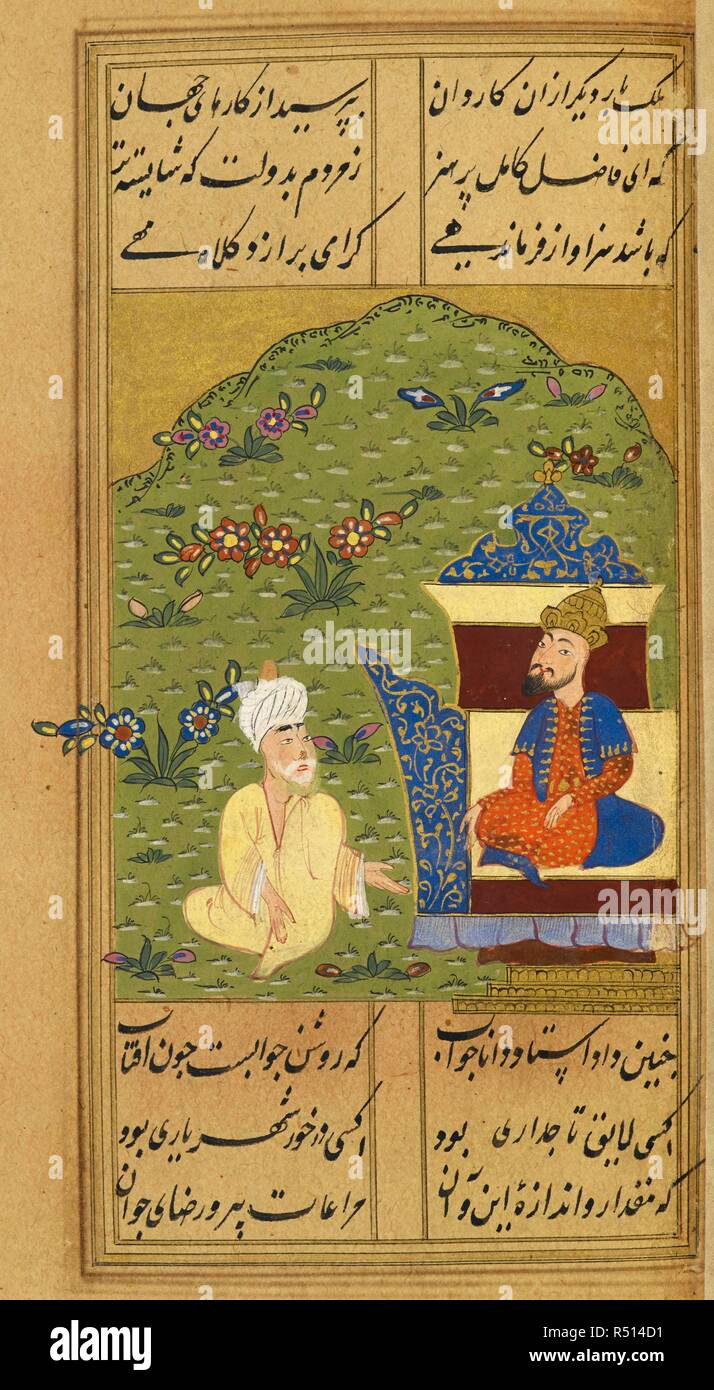 ملک بار دیگر از ان کاروان بپرسید از کارهای جهان
که ای فاضل کامل پر هنر ز مردم بدولت که شایسته تر
که باشد سزاوار فرماندهی کرا می برازد کلاه مهی
چنین داد استاد دانا جواب که روشن جوابست چون افتاب
کسی لایق تاجداری بود کسی در خور شهریاری بود
که مقدار و اندازهٔ این و آن مراعات پیر و رضای جوان
alamy
alamy
Image ID: R514D1
www.alamy.com